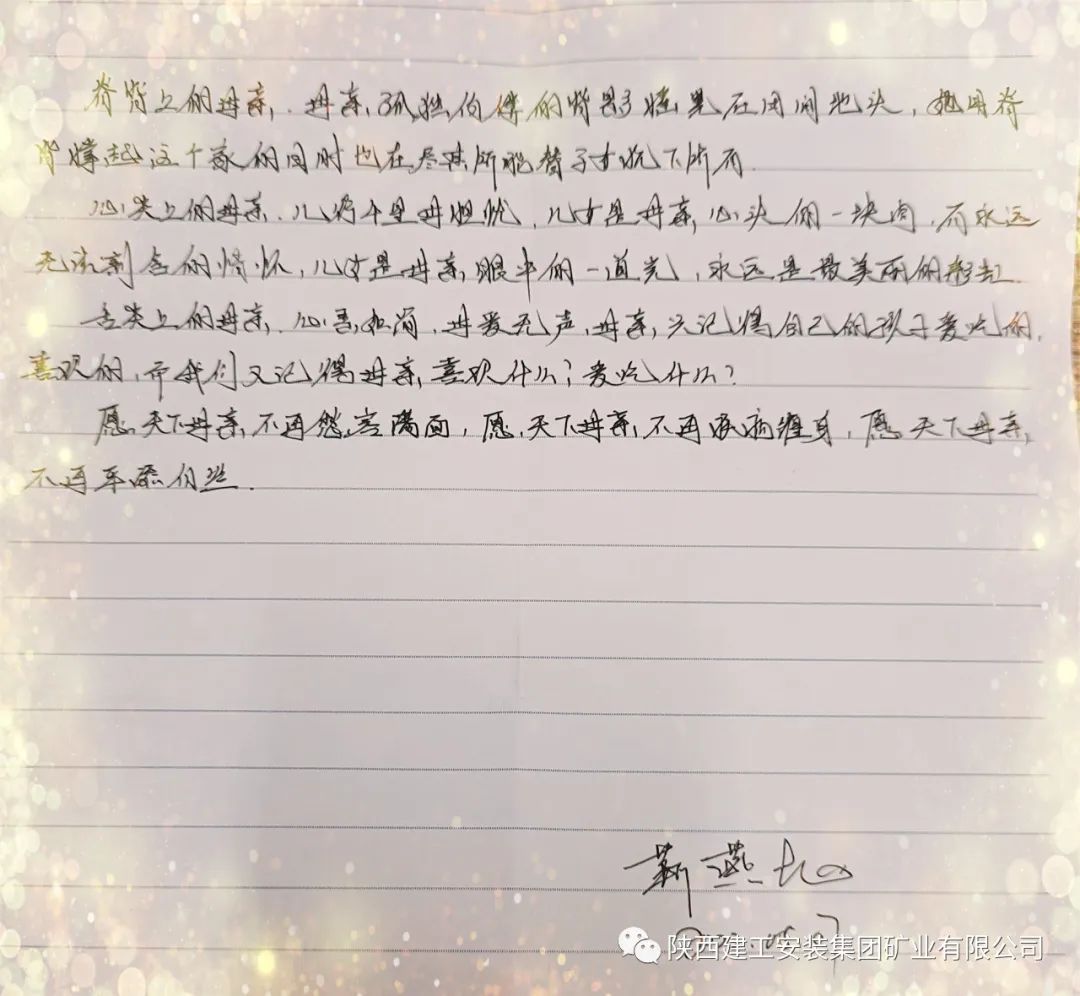 脊背上的母亲，母亲，孤独的背影总是在田间地头，她用脊
背撑起这个家的同时也在尽其所能替子女扛下所有.
心尖上的母亲，儿行千里母担忧，儿女是母亲，心头的一块肉，而永远
无法割舍的情怀，儿女是母亲，眼中的一道光，永远是最美丽的彩虹.
舌尖上的母亲，心善如，母爱无声，母亲，只记得自己的孩子爱吃的，
喜欢的，而我们又记得母亲，喜欢什么？爱吃什么？
愿，天下母亲，不再愁容满面，愿，天下母亲，不再疾病缠身，愿，天下母亲，
不再平添白丝.
靳燕
陕西建工安装集团矿业有限公司